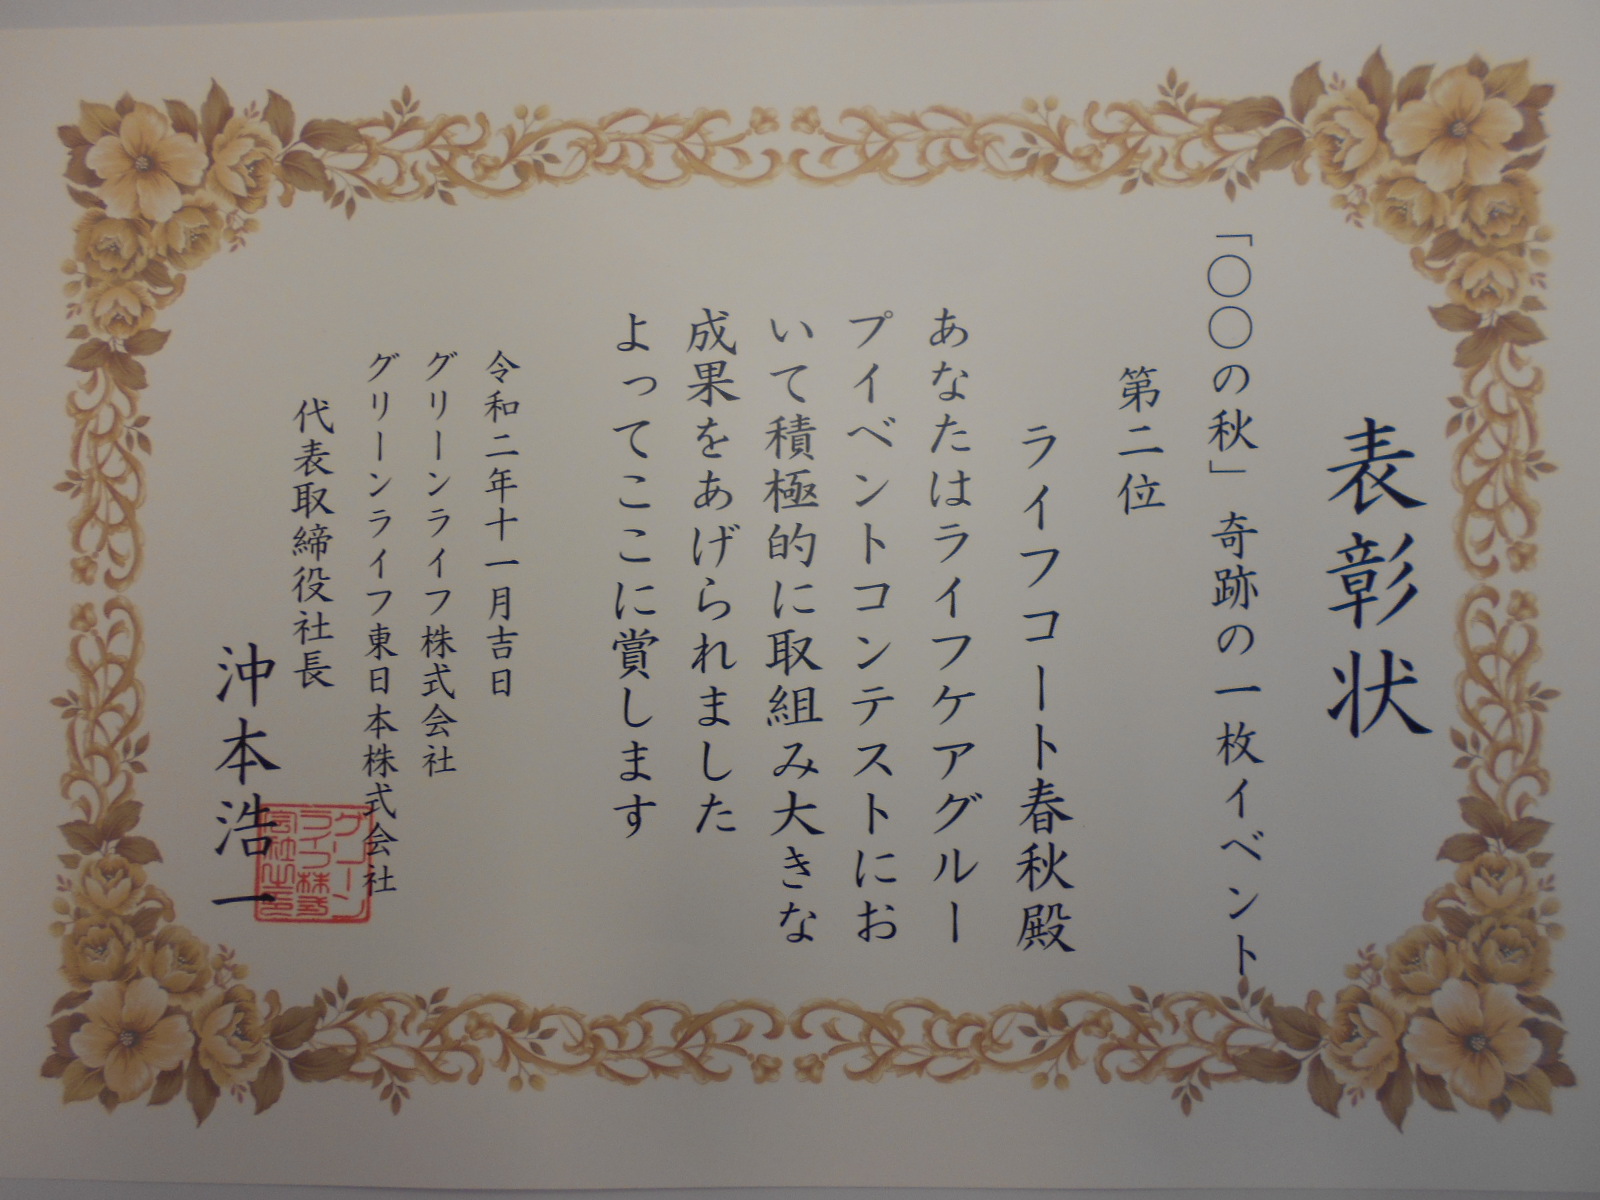 表彰状
「〇〇の秋」奇跡の一枚イベント
第二位
ライフコート春秋殿
あなたはライフケアグルー
プイベントコンテストにお
いて積極的に取組み大きな
成果をあげられました
よってここに賞します
令和二年十一月吉日
グリーンライフ株式会社
グリーンライフ東日本株式会社
代表取締役社長
沖本浩一
グリーン
ライフ株式
会社之印